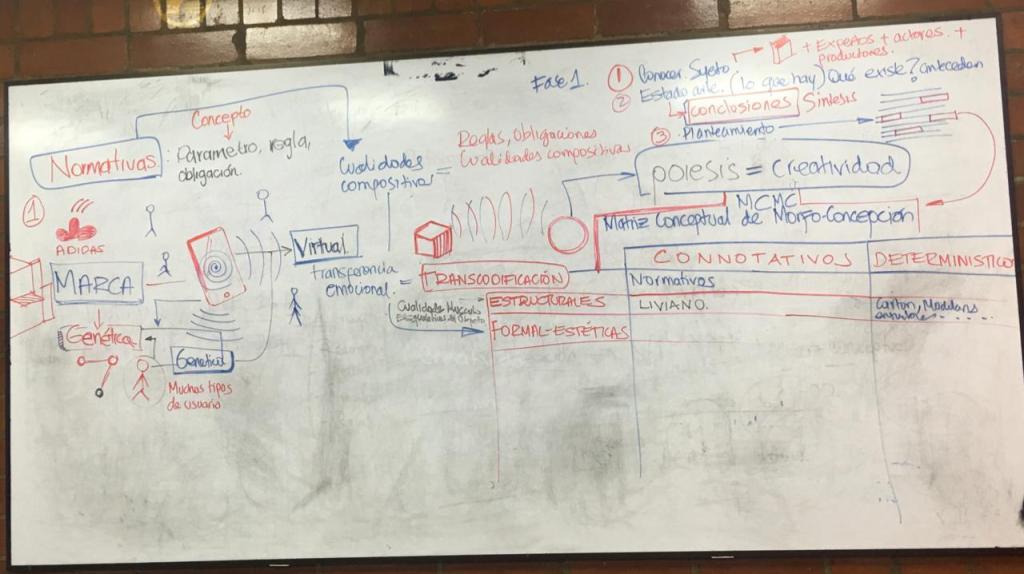 Concepto
Normativas : Parametro, regla,
obligación.
1
ADIDAS
MARCA
Genética
Genética
Muchos tipos
de usuario
Virtual
transferencia
emocional =
Cualidades
compositivas =
Reglas, Obligaciones
Cualidades compositivas
TRANSCODIFICACIÓN
Fase 1.
1 Conocer Sujeto
+ Expertos + actores +
productores.
2 Estado arte. (lo que hay) Qué existe?
conclusiones Sintesis
3 Planteamiento
poiesis = Creatividad
MCMC
Matriz Conceptual de Morfo-Concepción
CONNOTATIVOS
DETERMINISTICO
Normativos
ESTRUCTURALES
LIVIANO.
Carton,
FORMAL-ESTÉTICAS